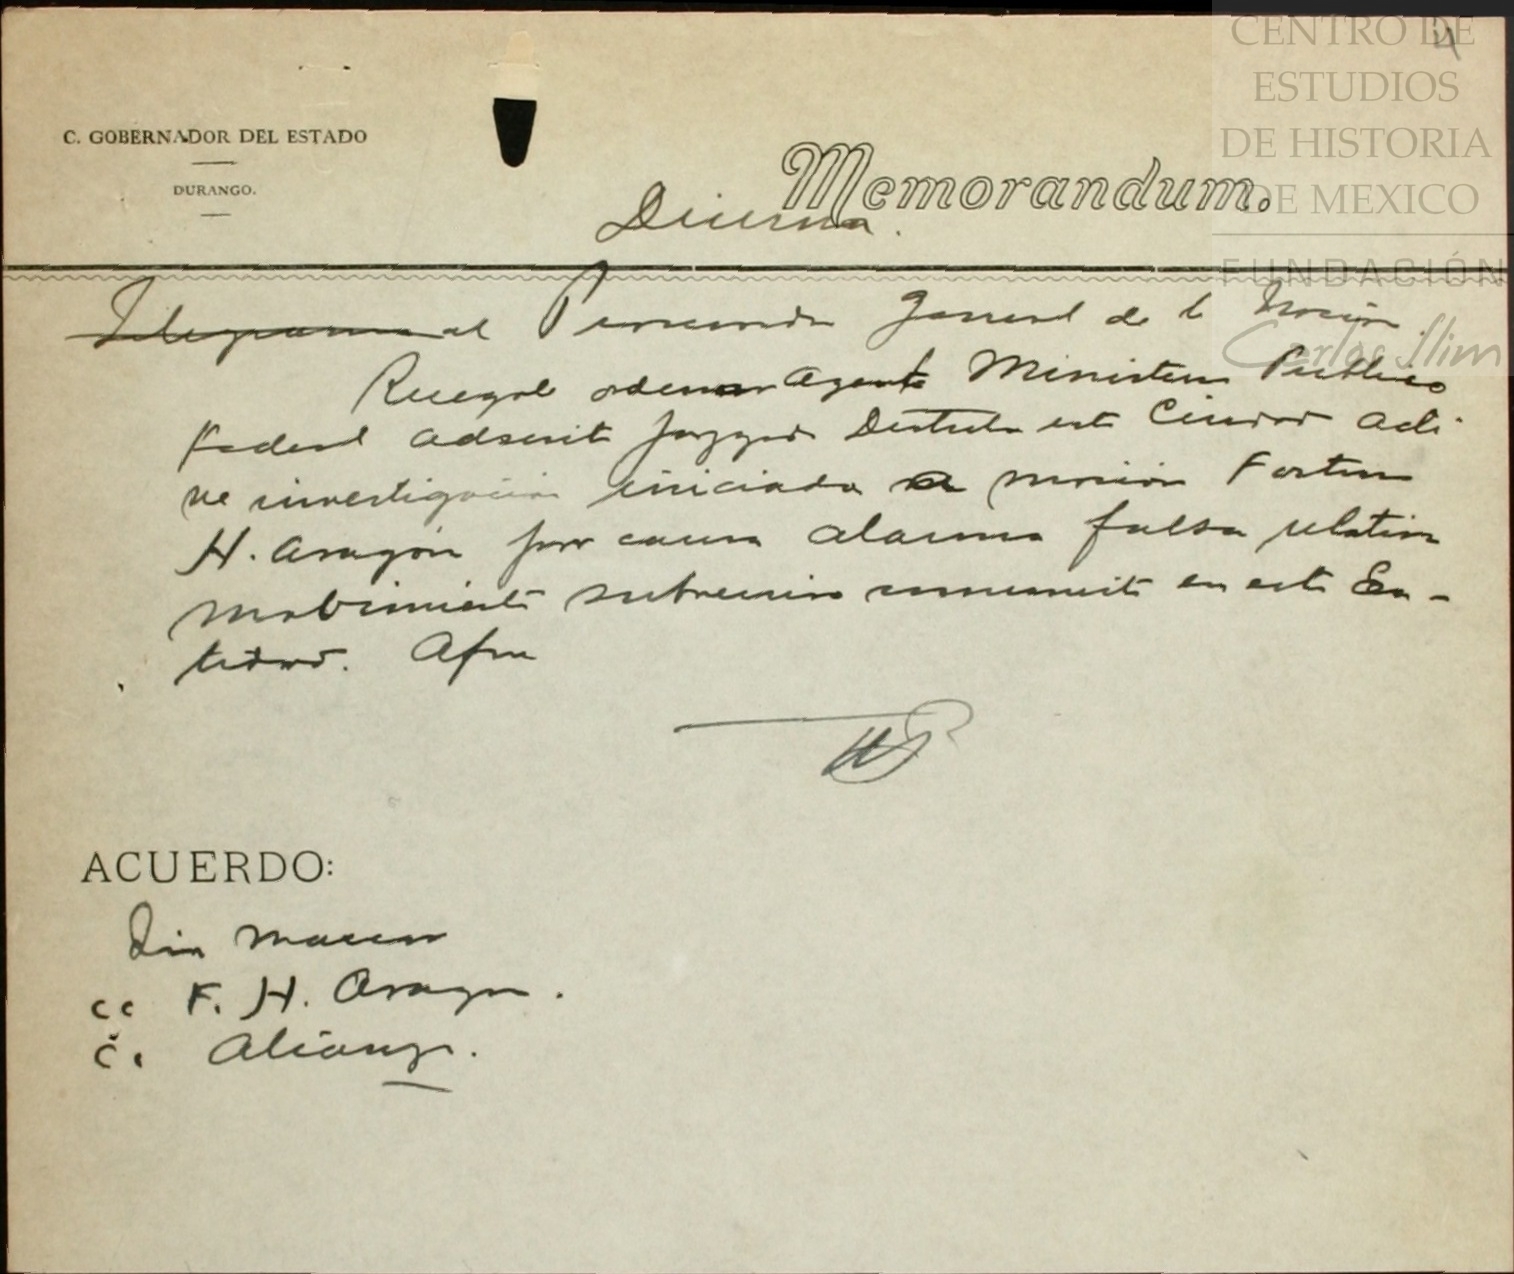 4
CENTRO DE
ESTUDIOS
DE HISTORIA
DE MEXICO
FUNDACIÓN
Carlos Slim
C. GOBERNADOR DEL ESTADO
DURANGO.
Memorandum.
Telegrama al Procurador General de la Nación
Ruegole ordenar Agente Ministerio Publico
Federal adscrito Juzgado Distrito esta Ciudad acti-
ve investigación iniciada moción Fortino
H. Aragón por causa alarma falsa relativa
mobimiento subversivo comunista en esta En-
tidad. Afm
ACUERDO:
cc F. H. Aragon.
c. Alianza.